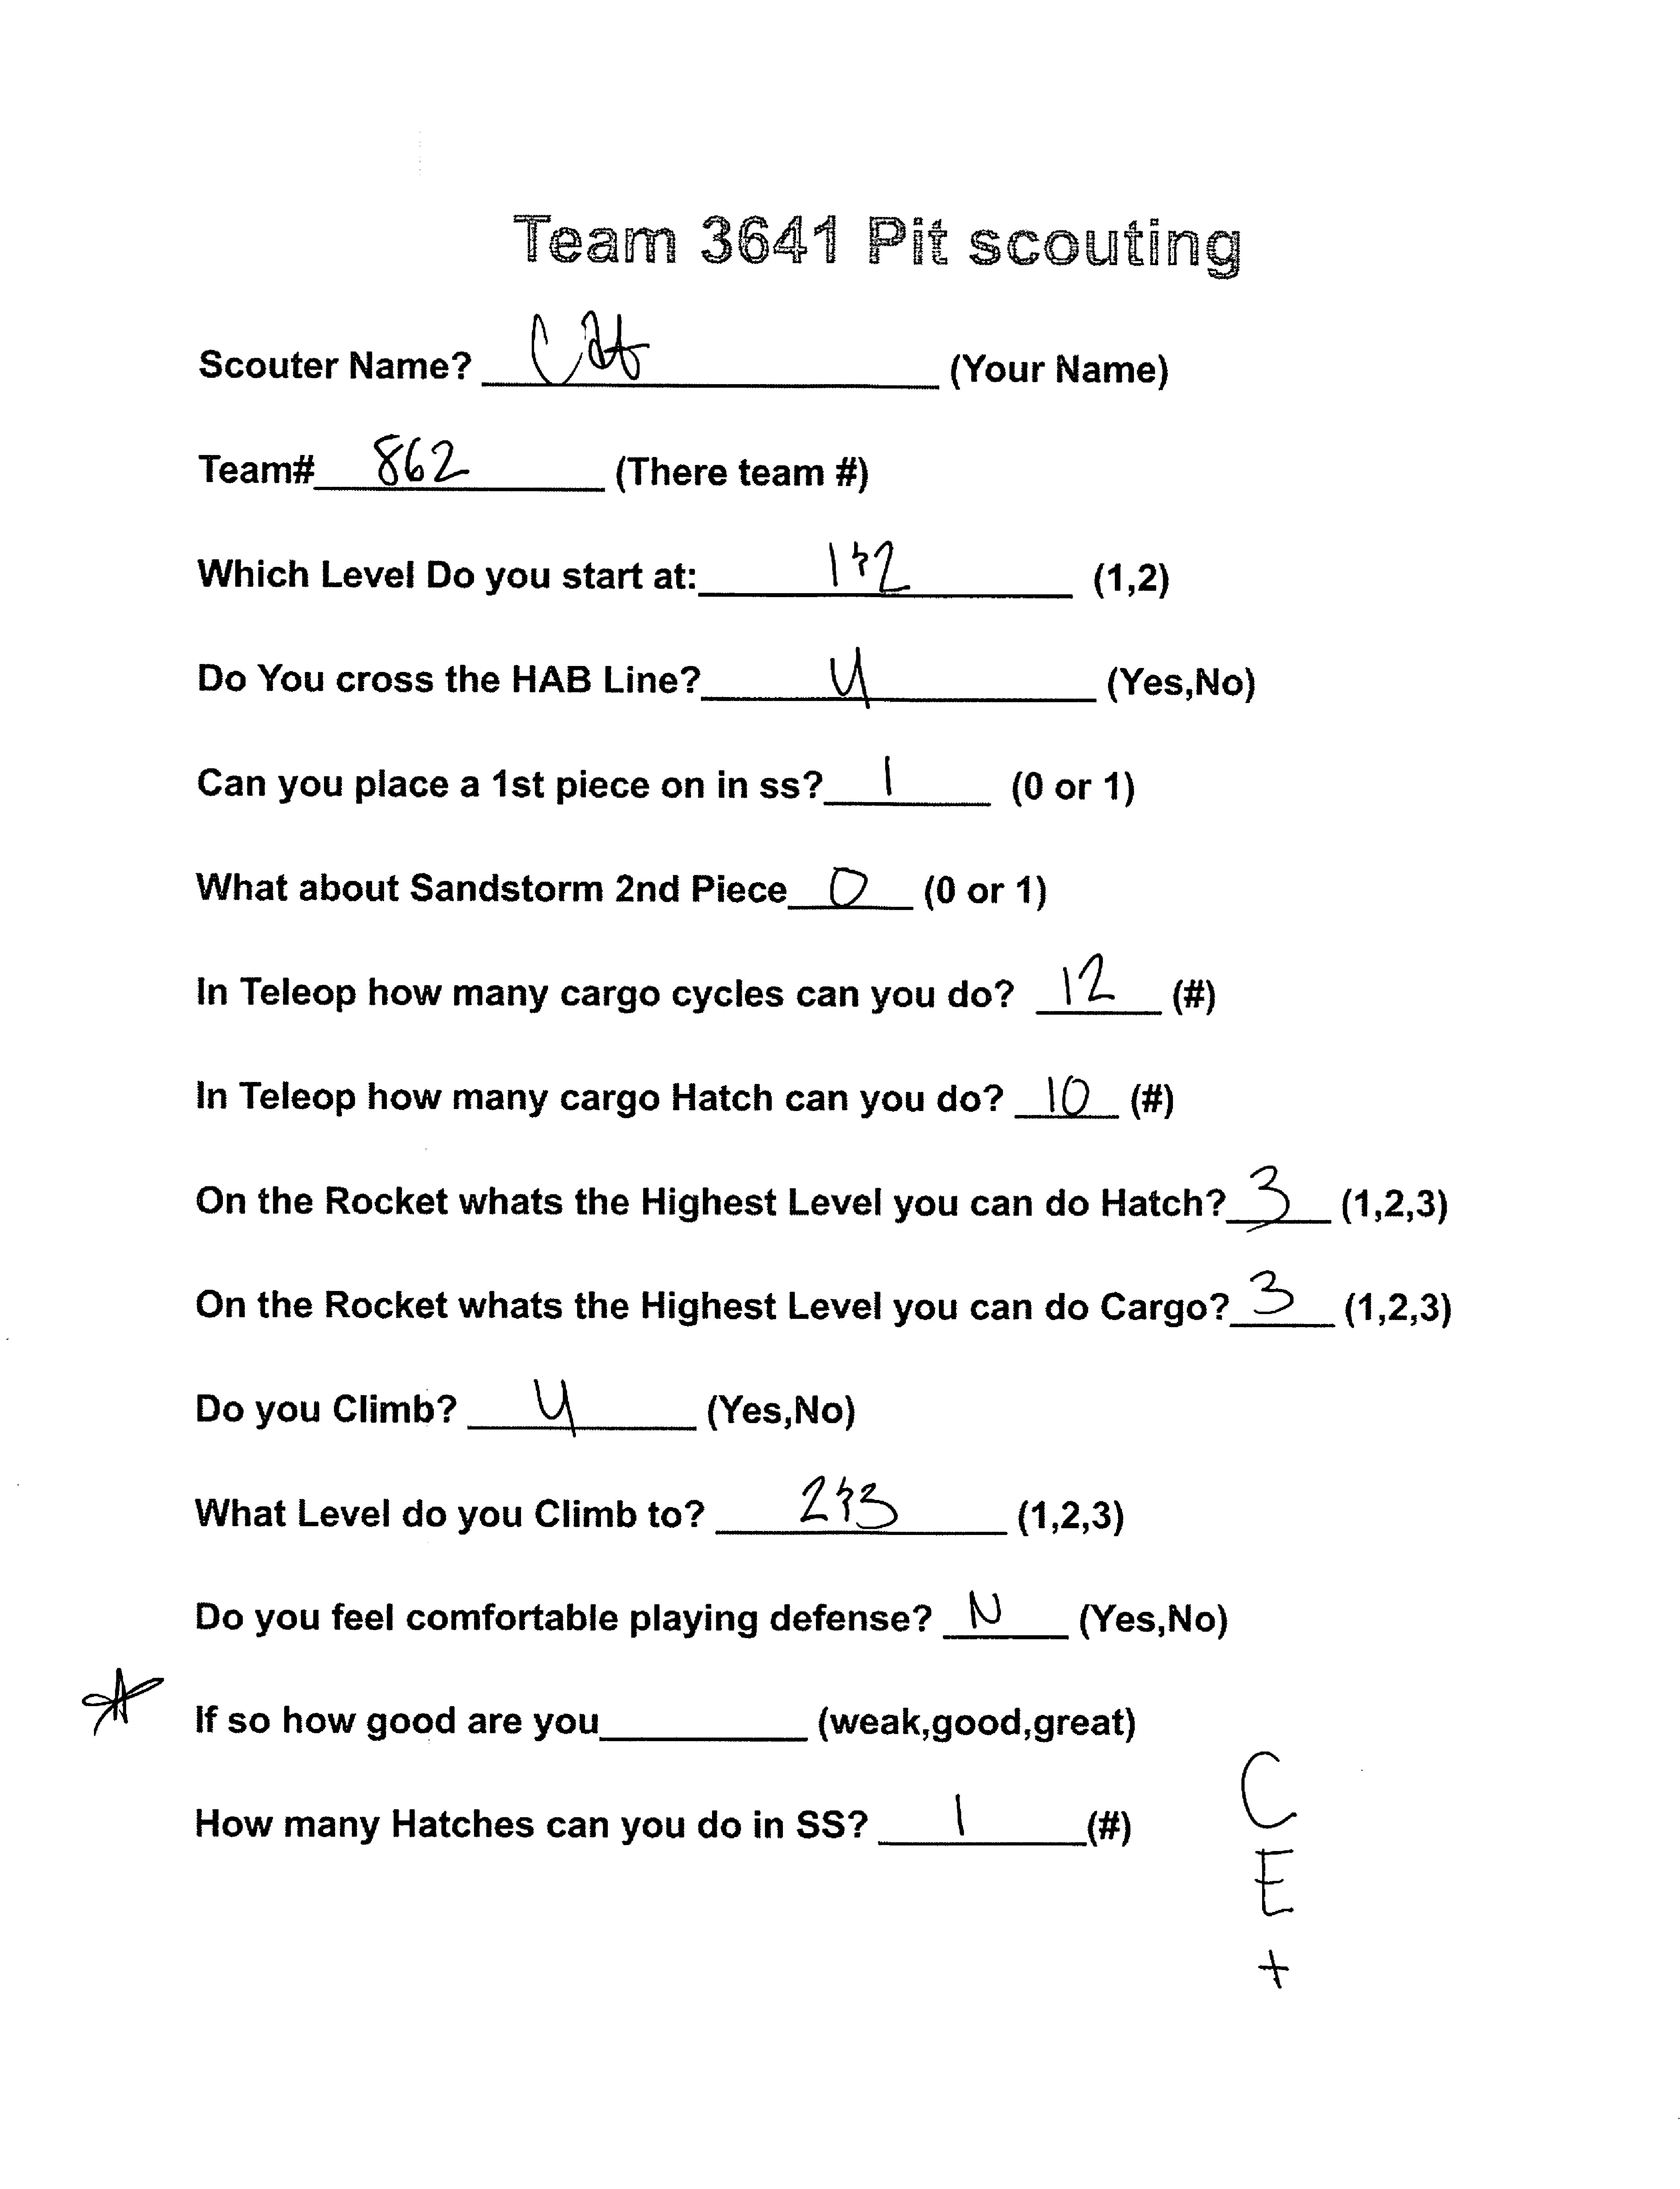 Team 3641 Pit scouting
Scouter Name? (Your Name)
Team# 862 (There team #)
Which Level Do you start at: 1&2 (1,2)
Do You cross the HAB Line? y (Yes,No)
Can you place a 1st piece on in ss? 1 (0 or 1)
What about Sandstorm 2nd Piece 0 (0 or 1)
In Teleop how many cargo cycles can you do? 12 (#)
In Teleop how many cargo Hatch can you do? 10 (#)
On the Rocket whats the Highest Level you can do Hatch? 3 (1,2,3)
On the Rocket whats the Highest Level you can do Cargo? 3 (1,2,3)
Do you Climb? y (Yes,No)
What Level do you Climb to? 2&3 (1,2,3)
Do you feel comfortable playing defense? N (Yes,No)
If so how good are you (weak,good,great)
How many Hatches can you do in SS? 1 (#)
C
E
+